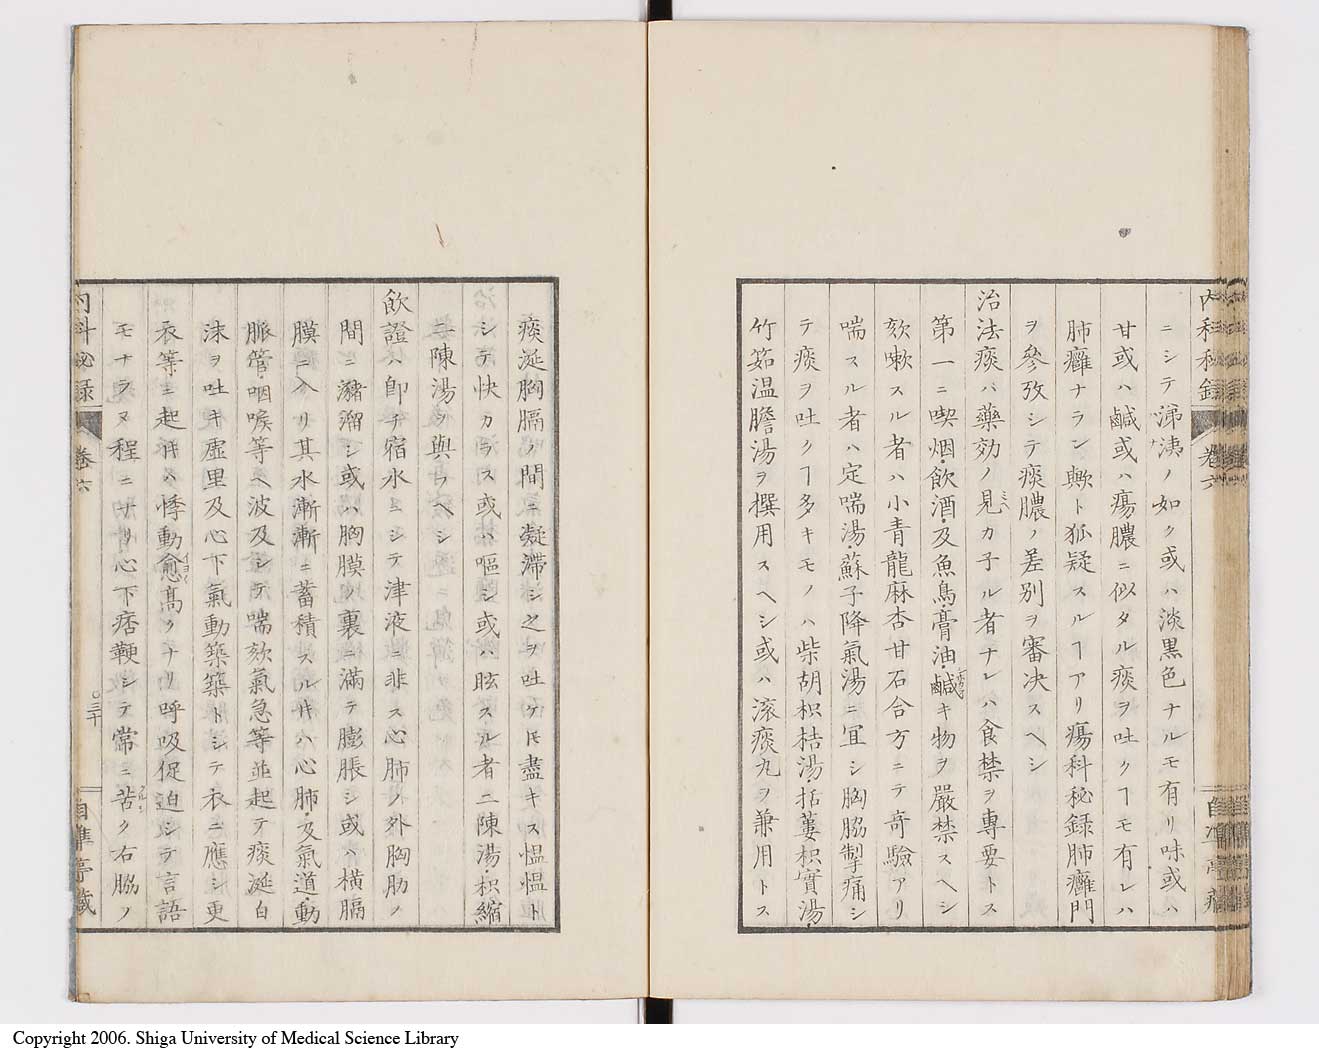 内科秘録 巻六 自準亭藏
ニシテ涕洟ノ如ク或ハ淡黒色ナルモ有リ味或ハ
甘或ハ鹹或ハ瘍膿ニ似タル痰ヲ吐クヿモ有レハ
肺癰ナラン歟ト狐疑スルヿアリ瘍科秘録肺癰門
ヲ參攷シテ痰膿ノ差別ヲ審决スヘシ
治法痰ハ藥効ノ見カ子ル者ナレハ食禁ヲ專要トス
第一ニ喫烟飲酒及魚鳥膏油鹹キ物ヲ嚴禁スヘシ
欬嗽スル者ハ小青龍麻杏甘石合方ニテ奇驗アリ
喘スル者ハ定喘湯蘇子降氣湯ニ冝シ胸脇掣痛シ
テ痰ヲ吐クヿ多キモノハ柴胡枳桔湯括蔞枳實湯
竹筎温膽湯ヲ撰用スヘシ或ハ滚痰丸ヲ兼用トス
痰涎胸膈ノ間ニ凝滞シ之ヲ吐ケㇳモ盡キス愠愠ト
シテ快カラス或ハ嘔シ或ハ眩スル者二陳湯枳縮
二陳湯ヲ與フヘシ
飲證ハ卽チ宿水ニシテ津液ニ非ス心肺ノ外胸肋ノ
間ニ瀦溜シ或ハ胸膜ノ裏ニ滿テ膨脹シ或ハ横膈
膜ニ入リ其水漸漸ニ蓄積スルㇳキハ心肺及氣道動
脈管咽喉等ヘ波及シテ喘欬氣急等並起テ痰涎白
沫ヲ吐キ虚里及心下氣動築築トシテ衣ニ應シ更
衣等ニ起ㇳキハ悸動愈高クナリ呼吸促迫シテ言語
モナラヌ程ニナリ心下痞鞕シテ常ニ苦ク右脇ノ
内科秘録 巻六 三十 自準亭藏
Copyright 2006. Shiga University of Medical Science Library